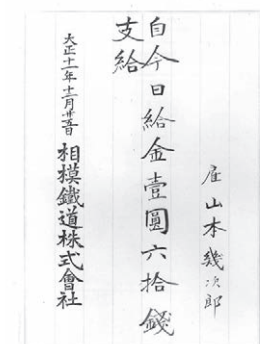 雇山本幾次郎
自今日給金壹圓六拾錢
支給
大正十一年十二月廿五日
相模鐵道株式會社